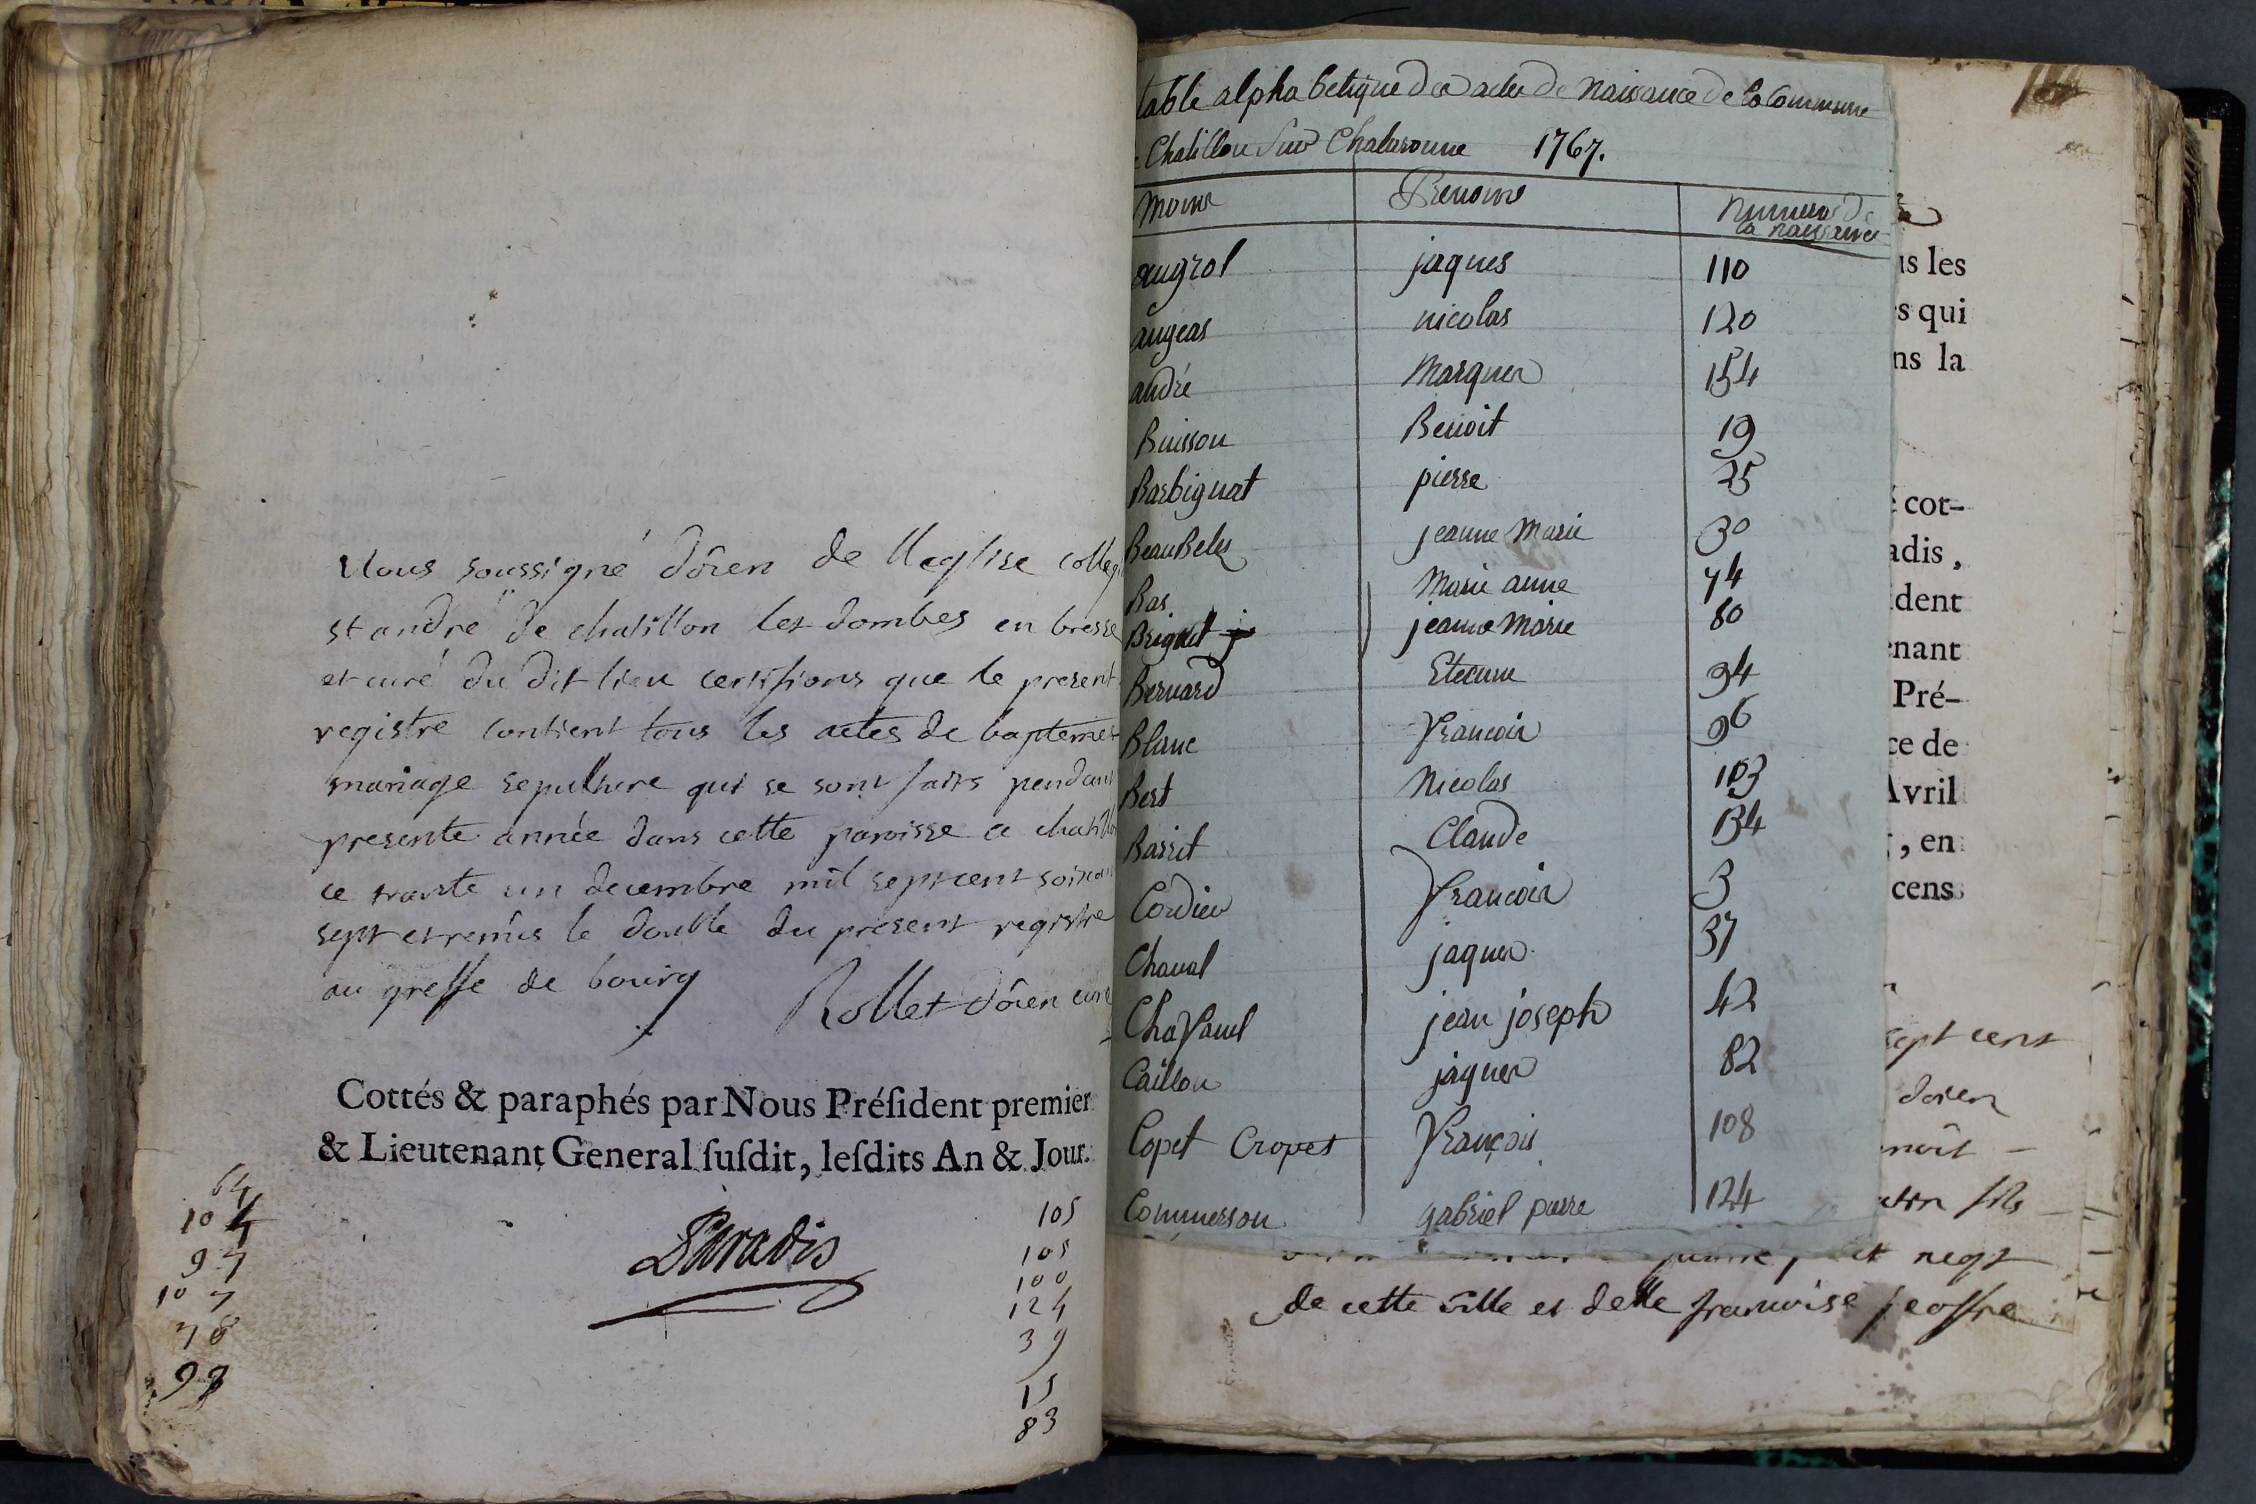 Nous soussigné doïen de l'leglise colleg
st andré de chatillon les dombes en bresse
et curé du dit lieu certifions que le present
registre contient tous les actes de baptemes
mariage sepulture qui se sont faits pendant
presente année dans cette paroisse a chatillo
ce trante un decembre mil sept cent soixan
sept et remis le double du present registre
au greffe de bourg Rollet doïen curé
Cottés & paraphés par Nous Préſident premier
& Lieutenant General ſuſdit, leſdits An & Jour.
Paradis
64
104
97
107
78
98
105
105
100
124
39
15
83
table alphabetique des actes de Naissance de la Commune
Chatillon Sur Chalaronne 1767.
Noms Prenoms Numeros de la naissance
augrol jaques 110
augeas nicolas 120
andré Marques 154
Buisson Benoit 19
Barbignat pierre 25
BeauBeles jeanne Marie 30
Bas Marie anne 74
Briquet jeanne Marie 80
Bernard Etienne 94
Blanc Francois 96
Bert Nicolas 103
Barrit Claude 134
Cordier Francois 3
Chanal jaques 37
Chafanel jean joseph 42
Caillon jaques 82
Copet Cropet François 108
Commerson gabriel pierre 124
us les
s qui
ns la
é cot-
adis,
ident
enant
Pré-
ce de
Avril
, en
cens
sept cent
doïen
noit
fils
neqt
de cette ville et delle francoise jeoffre